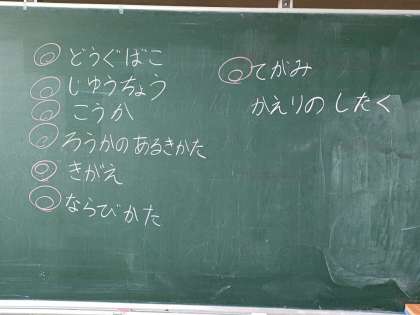 どうぐばこ
じゆうちょう
こうか
ろうかのあるきかた
きがえ
ならびかた
てがみ
かえりのしたく